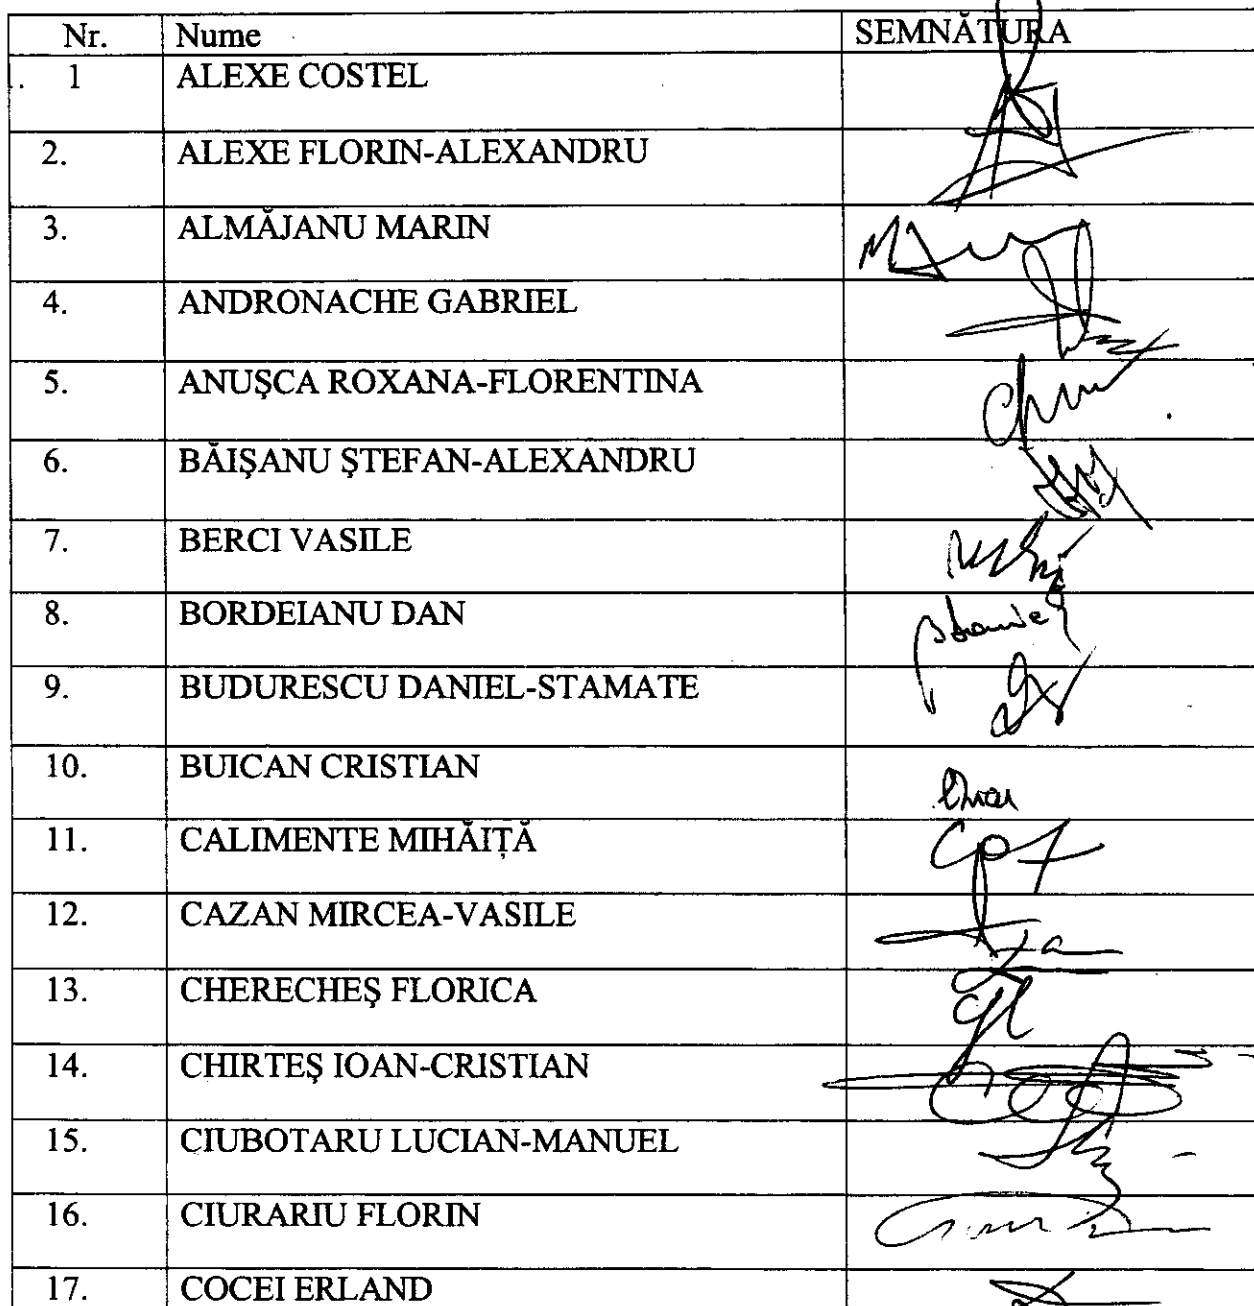 Nr. Nume SEMNĂTURA
1 ALEXE COSTEL
2. ALEXE FLORIN-ALEXANDRU
3. ALMĂJANU MARIN
4. ANDRONACHE GABRIEL
5. ANUŞCA ROXANA-FLORENTINA
6. BĂIŞANU ŞTEFAN-ALEXANDRU
7. BERCI VASILE
8. BORDEIANU DAN
9. BUDURESCU DANIEL-STAMATE
10. BUICAN CRISTIAN
11. CALIMENTE MIHĂIȚĂ
12. CAZAN MIRCEA-VASILE
13. CHERECHEŞ FLORICA
14. CHIRTEŞ IOAN-CRISTIAN
15. CIUBOTARU LUCIAN-MANUEL
16. CIURARIU FLORIN
17. COCEI ERLAND